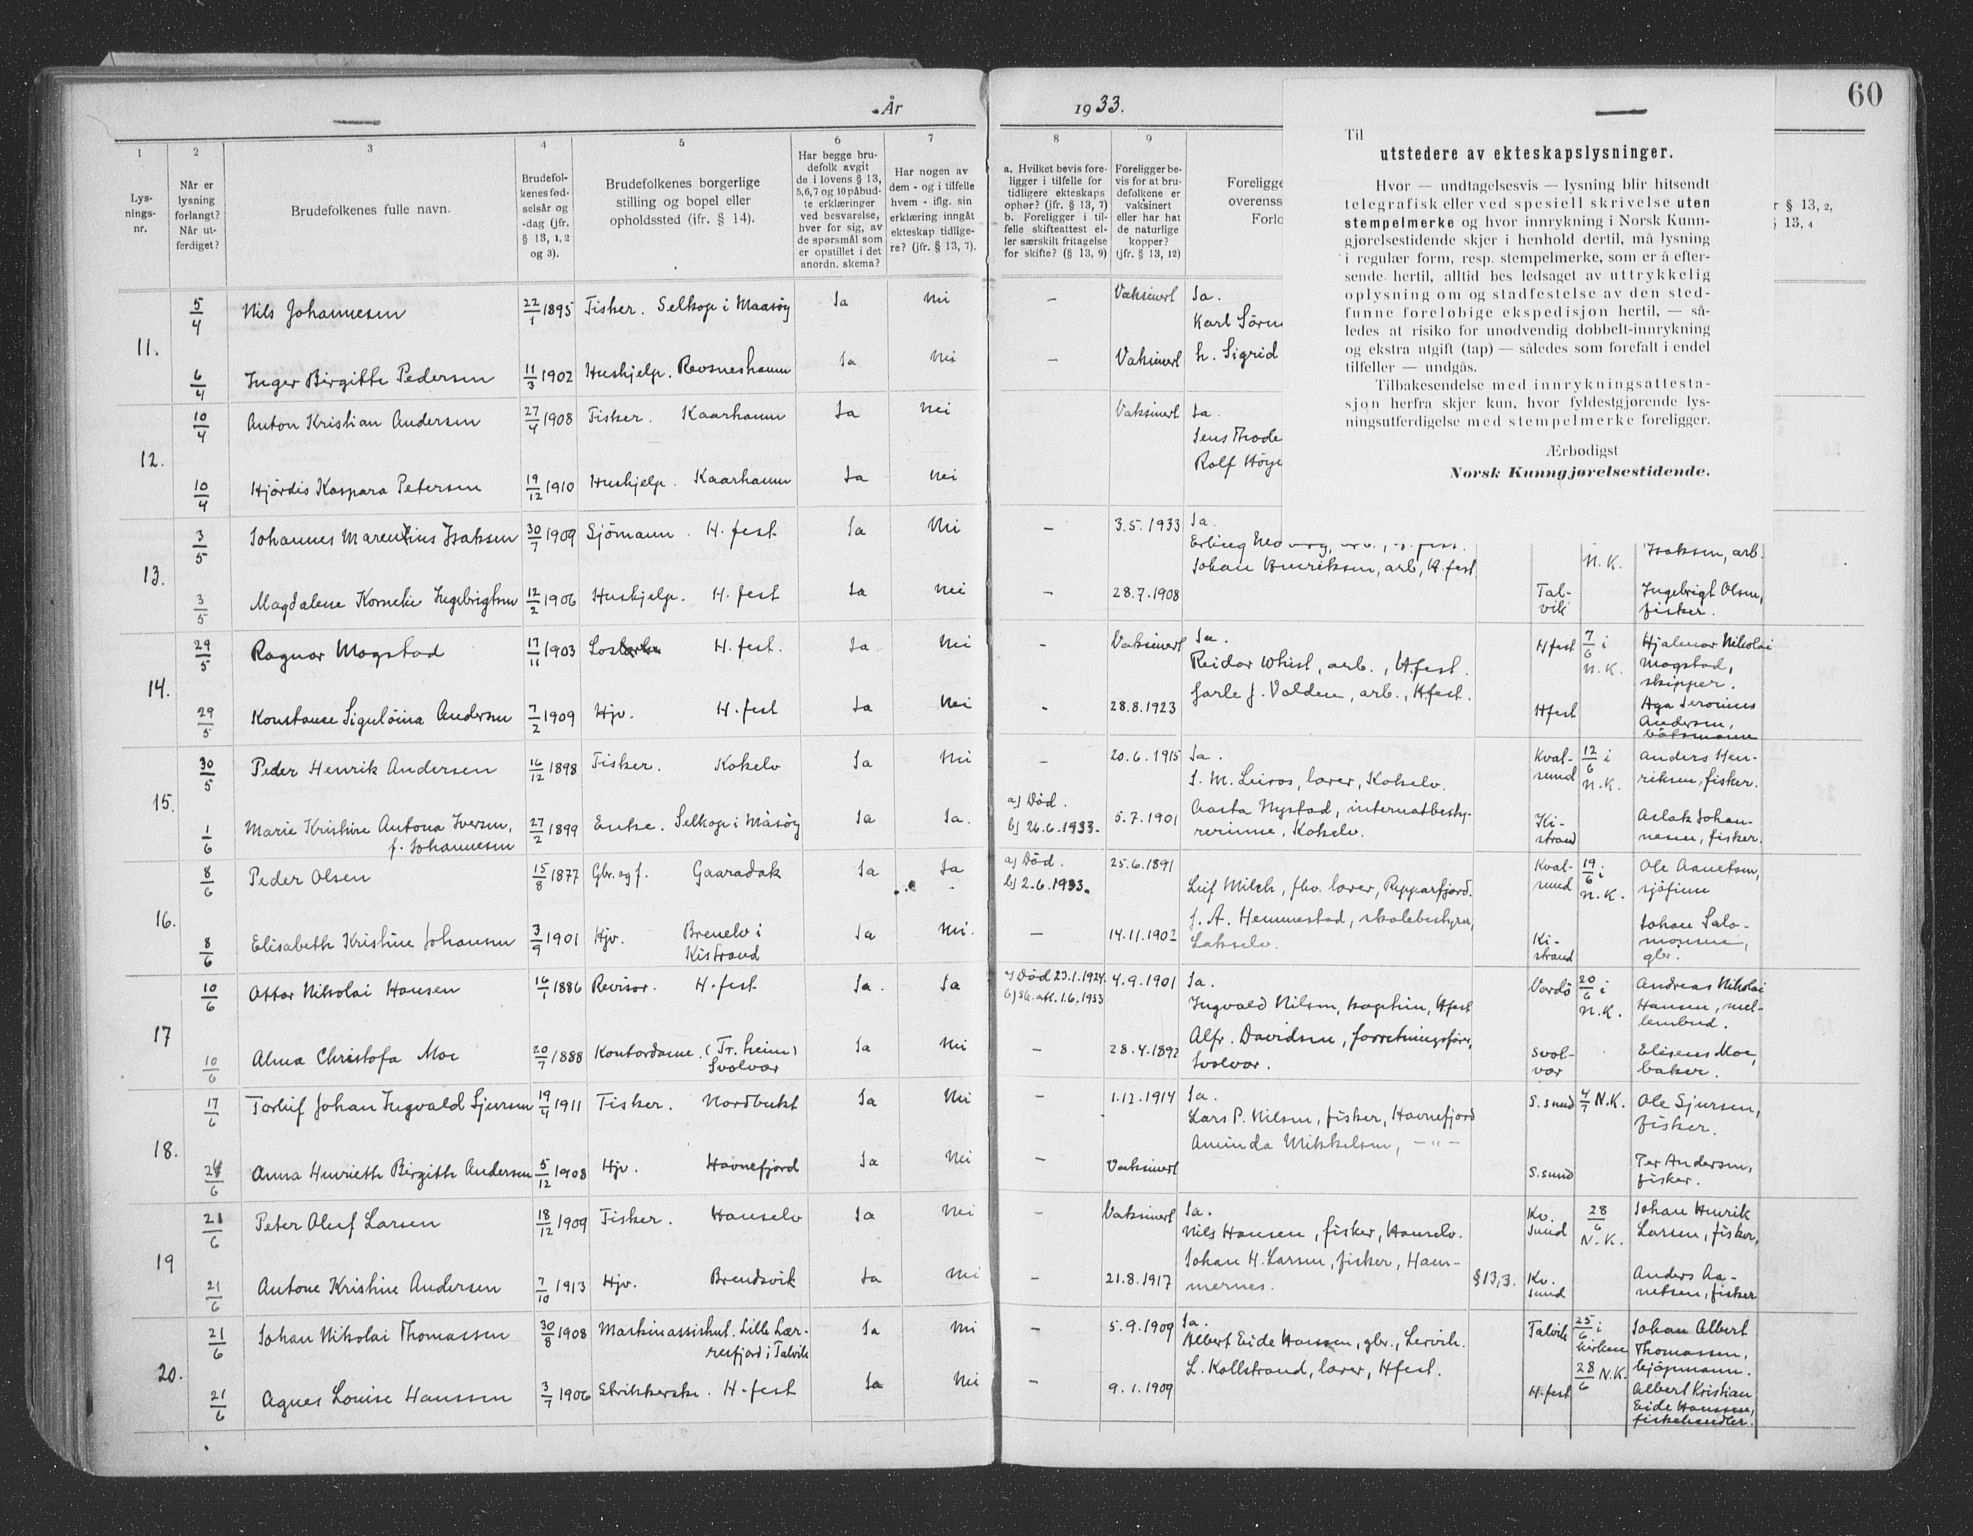 År 1933.
60
1
Lys-
nings-
nr.
2
Når er
lysning
forlangt?
Når ut-
ferdiget?
3
Brudefolkenes fulle navn.
4
Brudefol-
kenes fød-
selsår og
-dag (jfr.
§ 13, 1, 2
og 3).
5
Brudefolkenes borgerlige
stilling og bopel eller
opholdssted (jfr. § 14).
6
Har begge bru-
defolk avgit
de i lovens § 13,
5,6,7 og 10 påbud-
te erklæringer
ved besvarelse,
hver for sig, av
de spørsmål som
er opstillet i det
anordn. skema?
7
Har nogen av
dem - og i tilfelle
hvem - iflg. sin
erklæring inngåt
ekteskap tidlige-
re? (jfr. § 13, 7).
8
a. Hvilket bevis fore-
ligger i tilfelle for
tidligere ekteskaps
ophør? (jfr. § 13, 7)
b. Foreligger i til-
felle skifteattest el-
ler særskilt fritagelse
for skifte? (§ 13, 9)
9
Foreligger be-
vis for at bru-
defolkene er
vaksinert
eller har hat
de naturlige
kopper?
(jfr. § 13, 12)
Foreligge
overenss
Forlo
r § 13, 2,
§ 13, 4
Til
utstedere av ekteskapslysninger.
Hvor — undtagelsesvis — lysning blir hitsendt
telegrafisk eller ved spesiell skrivelse uten
stempelmerke og hvor innrykning i Norsk Kunn-
gjørelsestidende skjer i henhold dertil, må lysning
i regulær form, resp. stempelmerke, som er å efter-
sende hertil, alltid bes ledsaget av uttrykkelig
oplysning om og stadfestelse av den sted-
funne foreløbige ekspedisjon hertil, — så-
ledes at risiko for unødvendig dobbelt-innrykning
og ekstra utgift (tap) — således som forefalt i endel
tilfeller — undgås.
Tilbakesendelse med innrykningsattesta-
sjon herfra skjer kun, hvor fyldestgjørende lys-
ningsutferdigelse med stempelmerke foreligger.
Ærbødigst
Norsk Kunngjørelsestidende.
11.
5/4 Nils Johannesen 22/1 1895 Fisker. Selkop i Maasöy Ja Nei — Vaksinert Ja.
Karl Sörn
6/4 Inger Birgitte Pedersen 11/3 1902 Hushjelp. Revsneshamn Ja Nei — Vaksinert h. Sigrid
12.
10/4 Anton Kristian Andersen 27/4 1908 Fisker. Kaarhamn Ja Nei Vaksinert Ja.
Jens Thode
Rolf Höye
10/4 Hjördis Kaspara Petersen 19/12 1910 Hushjelp. Kaarhamn Ja Nei
13.
3/5 Johannes Marentius Isaksen 30/7 1909 Sjömann. H. fest Ja Nei — 3.5.1933 Ja.
Erling
Johan Henriksen, arb, H.fest N.K. Isaksen, arb.
3/5 Magdalene Kornelie Ingebrigtsen 12/2 1906 Hushjelp. H. fest Ja Nei — 28.7.1908 Tal-
vik Ingebrigt Olsen,
fisker.
14.
29/5 Ragnar Mogstad 17/11 1903 H. fest. Ja Nei — Vaksinert Ja.
Reidar Whist, arb., Hfest. Hfest 7/6 i
N.K. Hjalmar Nikolai
Mogstad,
skipper.
Jarle J. Valden, arb., Hfest.
29/5 Konstance Siguløina Andersen 7/2 1909 Hjv. H. fest Ja Nei — 28.8.1923 Hfest Aga Jeronius
Andersen,
båtsmann
15.
30/5 Peder Henrik Andersen 16/12 1898 Fisker. Kokelv Ja Nei — 20.6.1915 Ja.
J. M. Leiros, lærer, Kokelv. Kval-
sund 12/6 i
N.K. Anders Hen-
riksen, fisker.
1/6 Marie Kristine Antona Iversen,
f. Johannesen 27/2 1899 Enke. Selkop i Måsöy Ja Ja. a) Död.
b) 26.6.1933. 5.7.1901 Aasta Nystad, internatbesty-
rerinne, Kokelv. Ki-
strand Aslak Johan-
nesen, fisker.
16.
8/6 Peder Olsen 15/8 1877 Gbr. og f. Gaaradak Ja Ja a) Död.
b) 2.6.1933. 25.6.1891 Leif Milch, fhv. lærer, Repparfjord. Kval-
sund 19/6 i
N.K. Ole Aanetsen,
sjöfinn
8/6 Elisabeth Kristine Johansen 3/9 1901 Hjv. Brenelv i
Kistrand Ja Nei. — 14.11.1902 J. A. Hemmestad, skolebestyrer,
Lakselv. Ki-
strand Johan Salo-
monsen,
gbr.
17
10/6 Ottar Nikolai Hansen 16/1 1886 Revisor. H. fest Ja. Ja a) Död 23.1.1924.
b) Sk.att. 1.6.1933 4.9.1901 Ja.
Ingvald Nilsen, kaptein, Hfest Vardö 20/6 i
N.K. Andreas Nikolai
Hansen, møl-
lembud.
10/6 Alma Christofa Moe 20/7 1888 Kontordame. (Tr. heim)
Svolvær Ja Nei — 28.4.1892 Alfr. Davidsen, forretningsförer,
Svolvær. Svol-
vær Elisens Moe,
baker.
18.
17/6 Torleif Johan Ingvald Sjursen 19/4 1911 Fisker. Nordbukt Ja Nei — 1.12.1914 Ja.
Lars P. Nilsen, fisker, Havnefjord S.sund 4/7 N.K. Ole Sjursen,
fisker.
Aminda Mikkelsen, — " —
24/6 Anna Henriette Birgitte Andersen 5/12 1908 Hjv. Havnefjord Ja Nei — Vaksinert S.sund Per Andersen,
fisker.
19
21/6 Peter Oluf Larsen 18/12 1909 Fisker. Hanselv Ja Nei — Vaksinert Ja.
Nils Hansen, fisker, Hanselv. Kv.
sund 28/6
N.K. Johan Henrik
Larsen, fisker,
21/6 Antone Kristine Andersen 7/10 1913 Hjv. Brendsvik Ja Nei — 21.8.1917 Johan H. Larsen, fisker, Ham-
mernes. §13,3. Kv.
sund Anders Aa-
netsen, fisker
20.
21/6 Johan Nikolai Thomassen 30/8 1908 Maskinassistent. Lille Lær-
resfjord i Talvik Ja Nei — 5.9.1909 Ja.
Albert Eide Hanssen, gbr., Lervik. Talvik 25/6 i
kirken Johan Albert
Thomassen,
kjöpmann.
21/6 Agnes Louise Hanssen 3/7 1906 Strikkerske. H. fest Ja Nei — 9.1.1909 L. Kollstrand, lærer, Hfest. H. fest 28/6 N.K. Albert Kristian
Eide Hanssen,
fiskehandler.